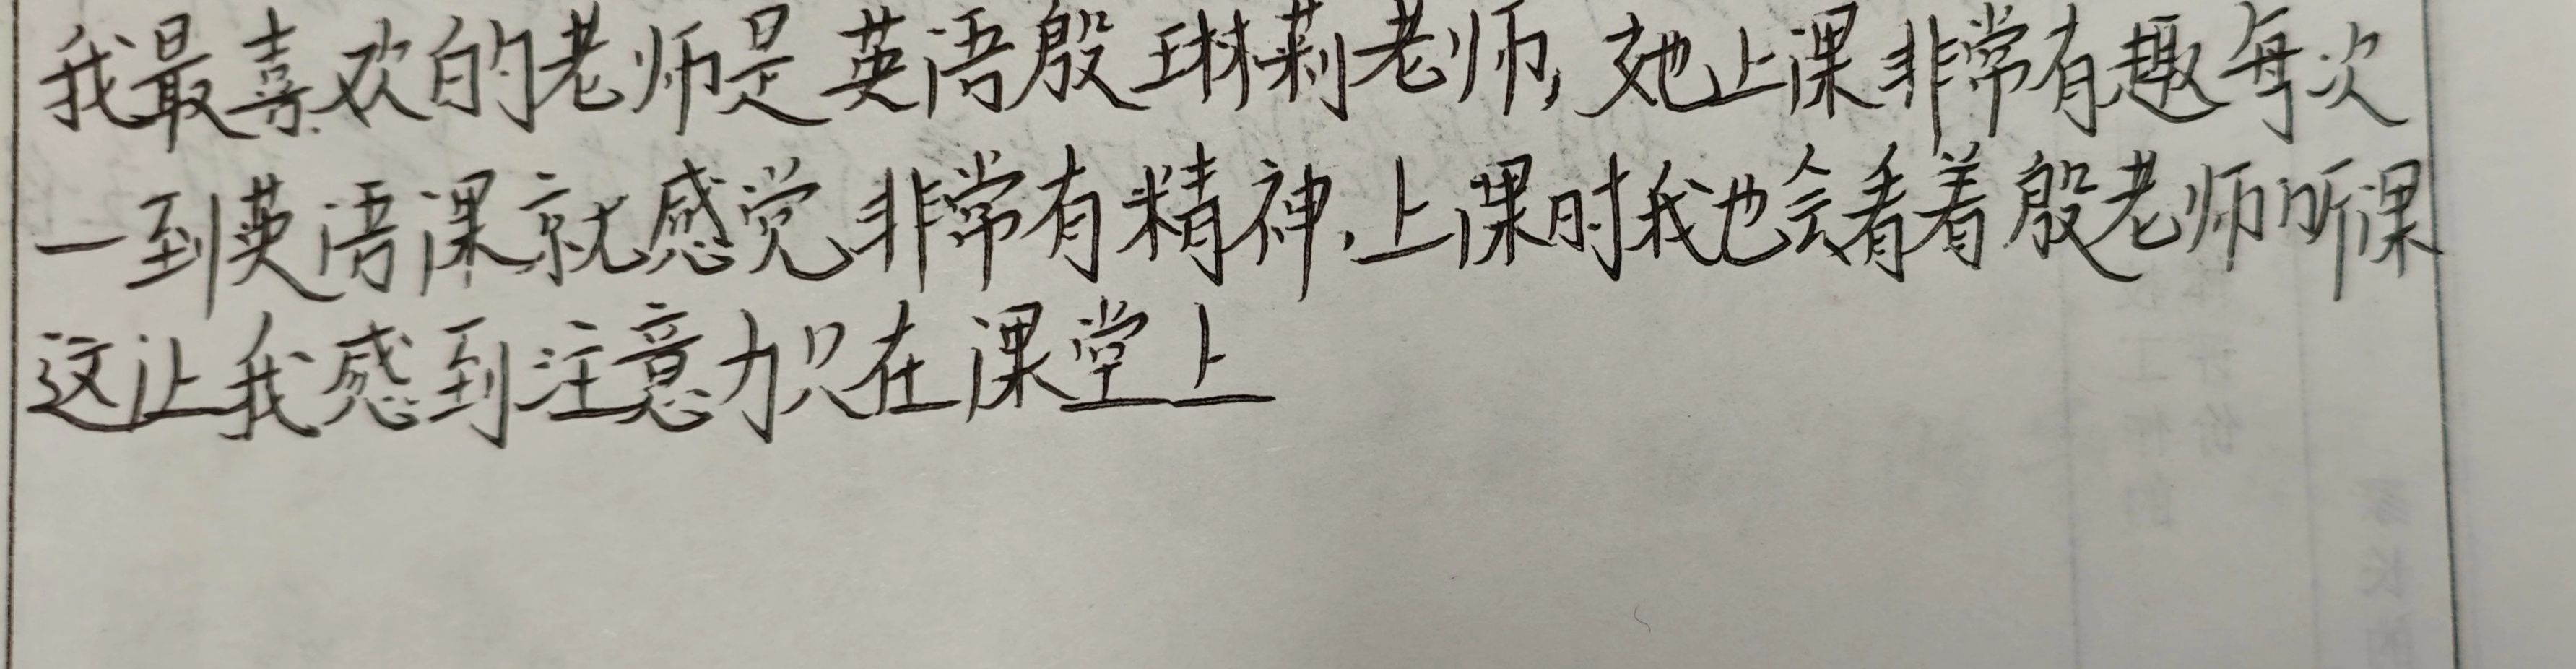 我最喜欢的老师是英语殷琳莉老师,她上课非常有趣每次
一到英语课就感觉非常有精神,上课时我也会看着殷老师听课
这让我感到注意力只在课堂上